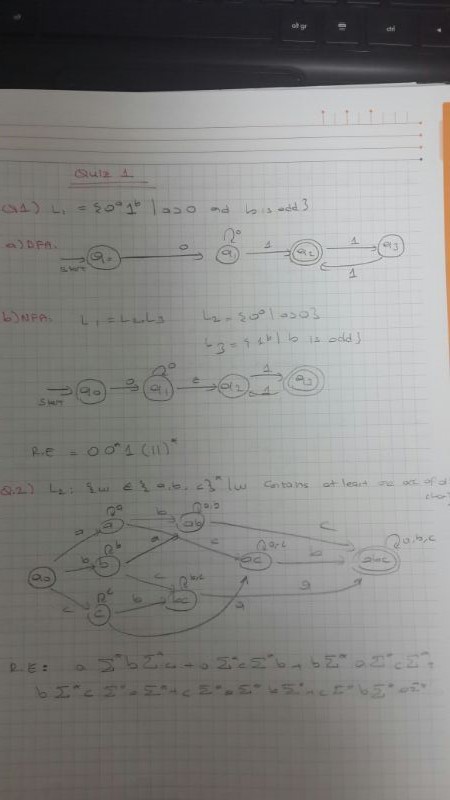 alt gr
ctrl
Quiz 1
Q1) L₁ = {0ᵃ1ᵇ | a>0 and b is odd}
a) DFA:
start q₀ 0 q₁ 0 1 q₂ 1 q₃ 1
b) NFA: L₁ = L₂L₃ L₂ = {0ᵃ | a>0}
L₃ = {1ᵇ | b is odd}
start q₀ 0 q₁ 0 ε q₂ 1 1 q₃
R.E = 00*1(11)*
Q.2) L₂: {w ∈ {a,b,c}* | w contains at least one occ of
a a a b ab a,b c
q₀ b b b a c ac a,c b abc a,b,c
c c c b c bc b,c a a
R.E: aΣ*bΣ*c + aΣ*cΣ*b + bΣ*aΣ*cΣ* +
bΣ*cΣ*aΣ* + cΣ*aΣ*bΣ* + cΣ*bΣ*aΣ*